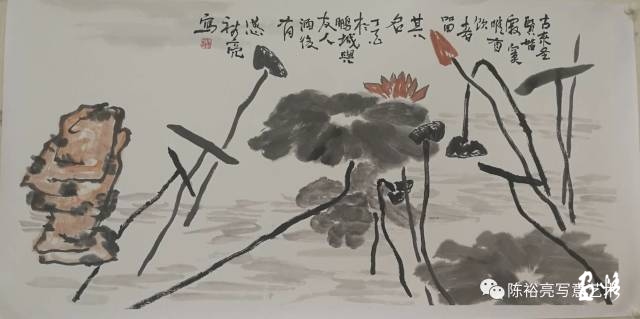 古来圣
贤皆
寂寞
唯有
饮
者
留
其
名
丁酉
於
鵬城與
友人
酒後
有
感
裕亮
寫
陈裕亮写意艺术